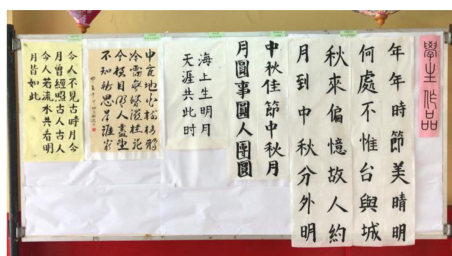 學生作品
年年時節美晴明
何處不惟台與城
秋來偏憶故人約
月到中秋分外明
中秋佳節中秋月
月圓事圓人團圓
海上生明月
天涯共此時
中庭地白樹棲鴉
冷露無聲濕桂花
今夜月明人盡望
不知秋思落誰家
今人不見古時月今
月曾經照古人古人
今人若流水共看明
月皆如此